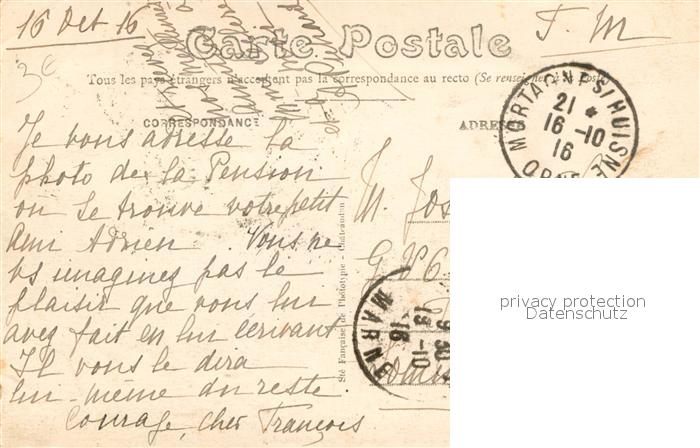 16 Oct 16
F. M
3e
Carte Postale
Tous les pays étrangers n'acceptent pas la correspondance au recto (Se renseigner à la Poste)
CORRESPONDANCE
ADRESSE
MORTAGNE S/HUISNE
21 *
16 -10
16
ORNE
Je vous adresse la
photo de la Pension
où se trouve votre petit
Ami Adrien. Vous ne
vs imaginez pas le
plaisir que vous lui
avez fait en lui écrivant
Il vous le dira
lui-même du reste
Courage, cher François
M. Jos
MARNE
9 30
13 -10
16
Sté Française de Phototypie - Châteaudun
privacy protection
Datenschutz